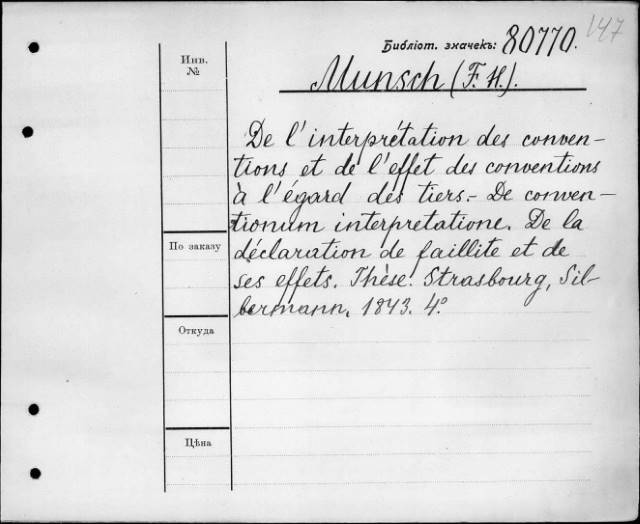 147
Библіот. значекъ: 80770.
Инв.
№
Munsch (F. H.).
De l'interprétation des conven-
tions et de l'effet des conventions
à l'égard des tiers.- De conven-
tionum interpretatione. De la
По заказу
déclaration de faillite et de
ses effets. Thèse. Strasbourg, Sil-
bermann, 1843. 4º
Откуда
Цѣна